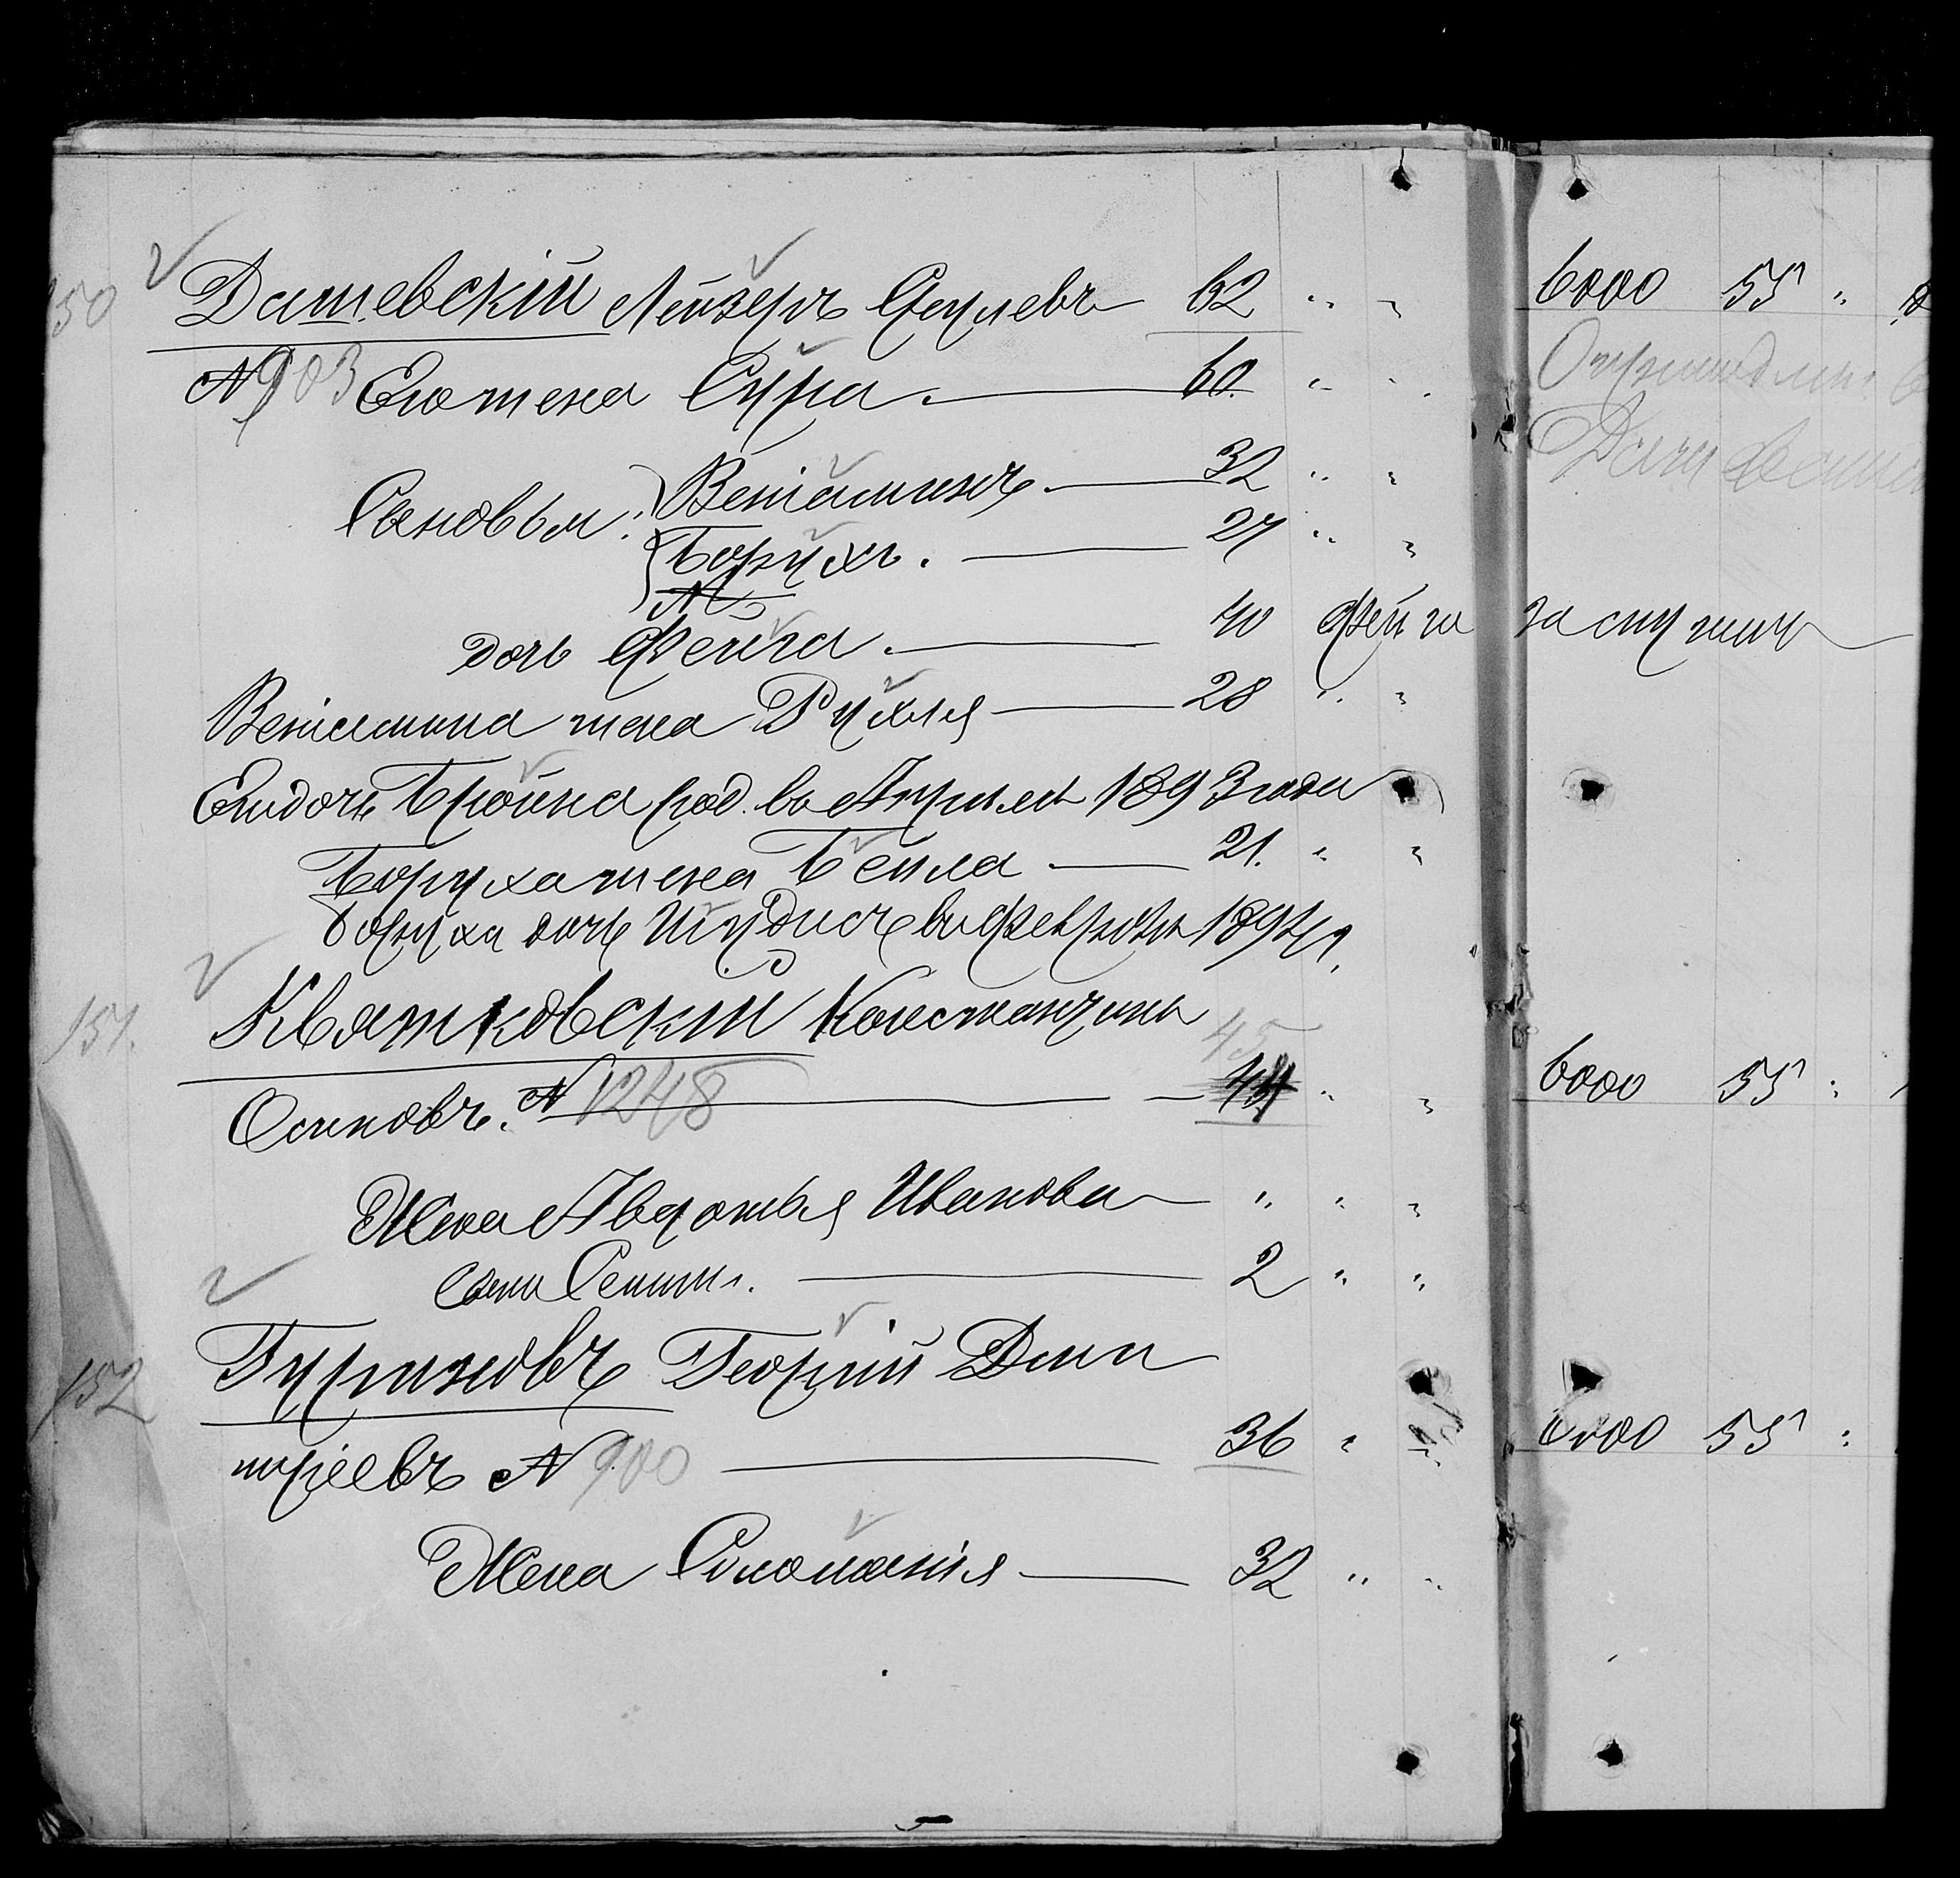 150 Дашевскій Лейзеръ Срулевъ 62 " " 6000 55 "
№ 903 Его жена Сура. 60. " "
Сыновья: Веніаминъ. 32 " "
Борухъ. 27 " "
дочь Фейга. 40 Фейга замужемъ
Веніамина жена Рухля 28 " "
Ихъ дочь Бройна род. въ Апрѣлѣ 1893 года
Боруха жена Бейла 21. " "
Боруха дочь въ Февралѣ 1894 г.
151. Квятковскій Константинъ
45
Осиповъ. № 1248 44 " " 6000 55 "
Жена Авдотья Иванова " " "
сынъ 2 " "
152 Гуржновъ Георгій Дми
тріевъ № 900 36 " " 6000 55 "
Жена Соломонія 32 " "